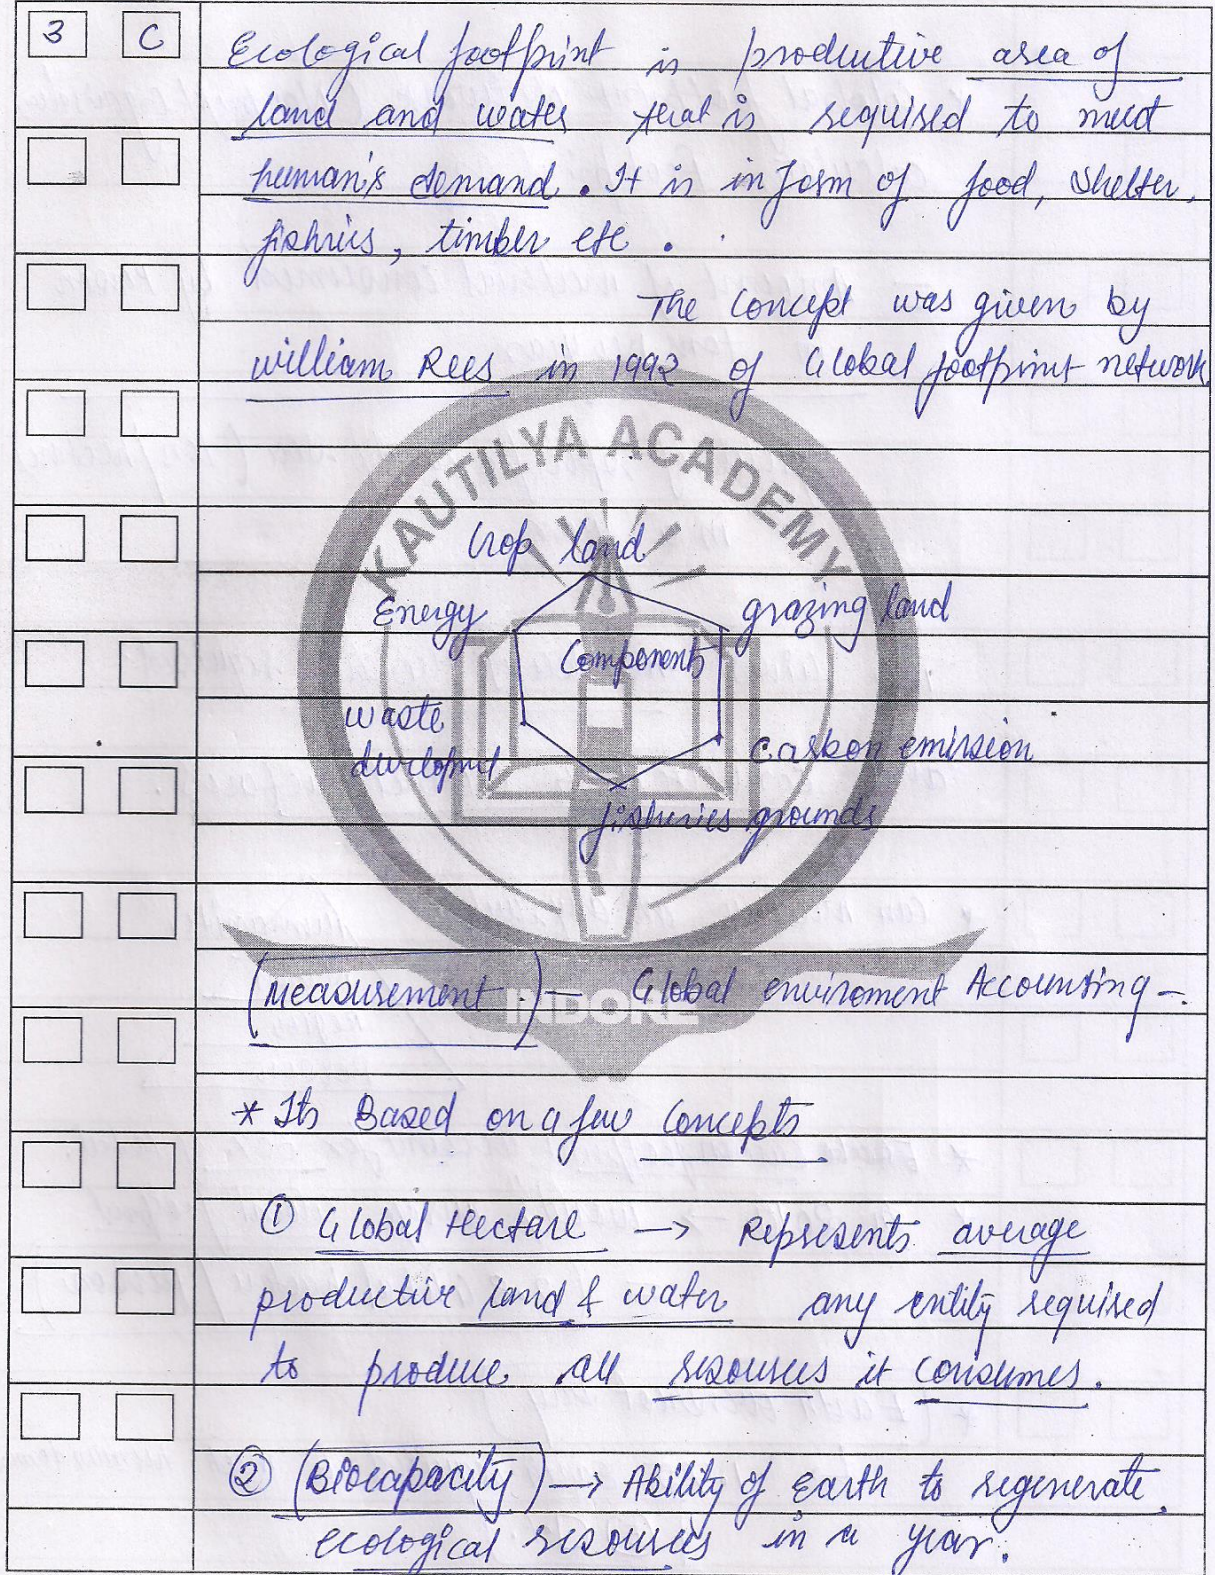 3 C
Ecological footprint is productive area of
land and water that is required to meet
human's demand. It is in form of food, shelter,
fishries, timber etc.
The Concept was given by
William Rees in 1992 of Global footprint network.
KAUTILYA ACADEMY
Crop land
Energy
grazing land
Components
waste
Carbon emission
fisheries grounds
(Measurement.) — Global enviroment Accounting -.
INDORE
* Its Based on a few Concepts.
① Global Hectare → Represents average
productive land & water any entity required
to produce all resources it consumes.
② (Biocapacity) → Ability of Earth to regenerate
ecological resources in a year.